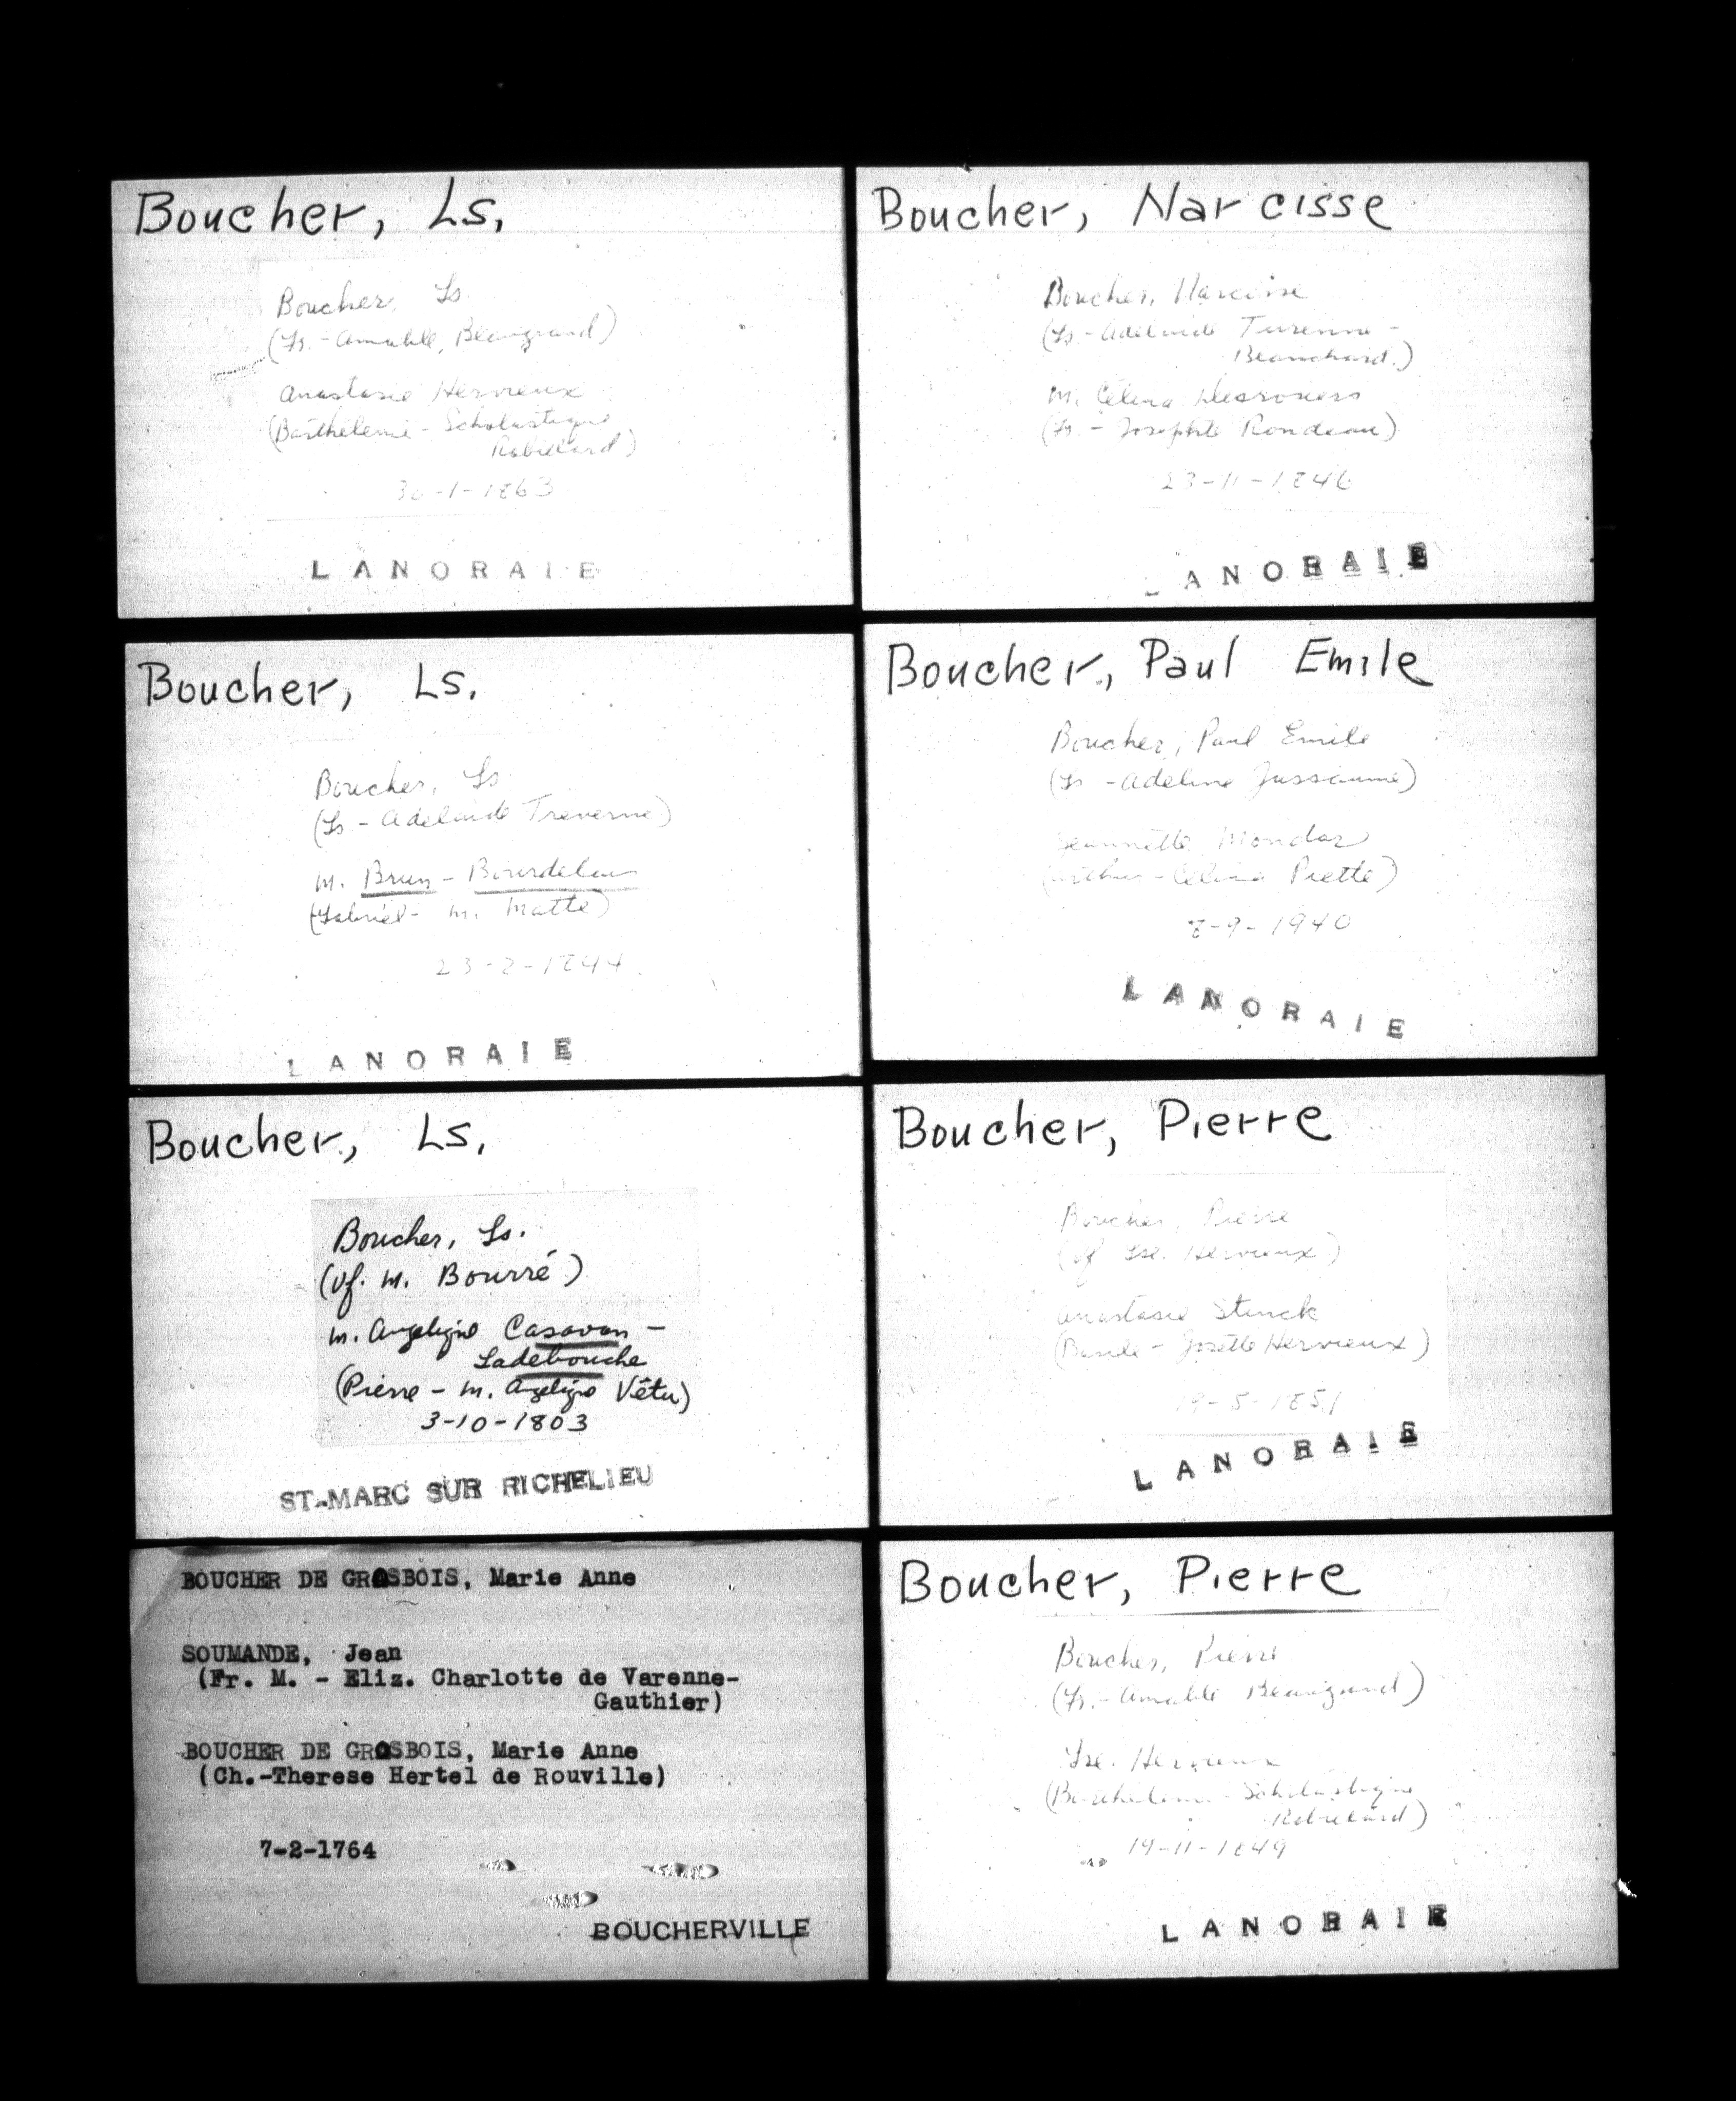 Boucher, Ls.
Boucher, Ls
(Fs. - Amable Beaugrand)
Anastasie Hervieux
(Barthelemie - Scholastique
Robillard)
30-1-1863
LANORAIE
Boucher, Ls.
Boucher, Ls
(Ls - Adelaide Treverne)
m. Brun - Bourdelais
(Gabriel - m. Matte)
23-2-1844
LANORAIE
Boucher, Ls.
Boucher, Ls.
(vf. m. Bourré)
m. Angeliqe Casavan -
Ladebouche
(Pierre - m. Angeliqe Vêtu)
3-10-1803
ST-MARC SUR RICHELIEU
BOUCHER DE GROSBOIS, Marie Anne
SOUMANDE, Jean
(Fr. M. - Eliz. Charlotte de Varenne-
Gauthier)
BOUCHER DE GROSBOIS, Marie Anne
(Ch.-Therese Hertel de Rouville)
7-2-1764
BOUCHERVILLE
Boucher, Narcisse
Boucher, Narcisse
(Ls - Adelaide Turenne -
Blanchard.)
m. Celina Desrosiers
(Fs. - Josephte Rondeau)
23-11-1846
LANORAIE
Boucher, Paul Emile
Boucher, Paul Emile
(Ls - Adeline Jussaume)
Jeannette Mondor
(Arthur - Celina Piette)
8-9-1940
LANORAIE
Boucher, Pierre
Boucher, Pierre
(vf Hervieux)
Anastasie
(Josette Hervieux)
19-5-1851
LANORAIE
Boucher, Pierre
Boucher, Pierre
(Fs. - Amable Beaugrand)
Hervieux
(Barthelemi - Scholastique
Robillard)
19-11-1849
LANORAIE